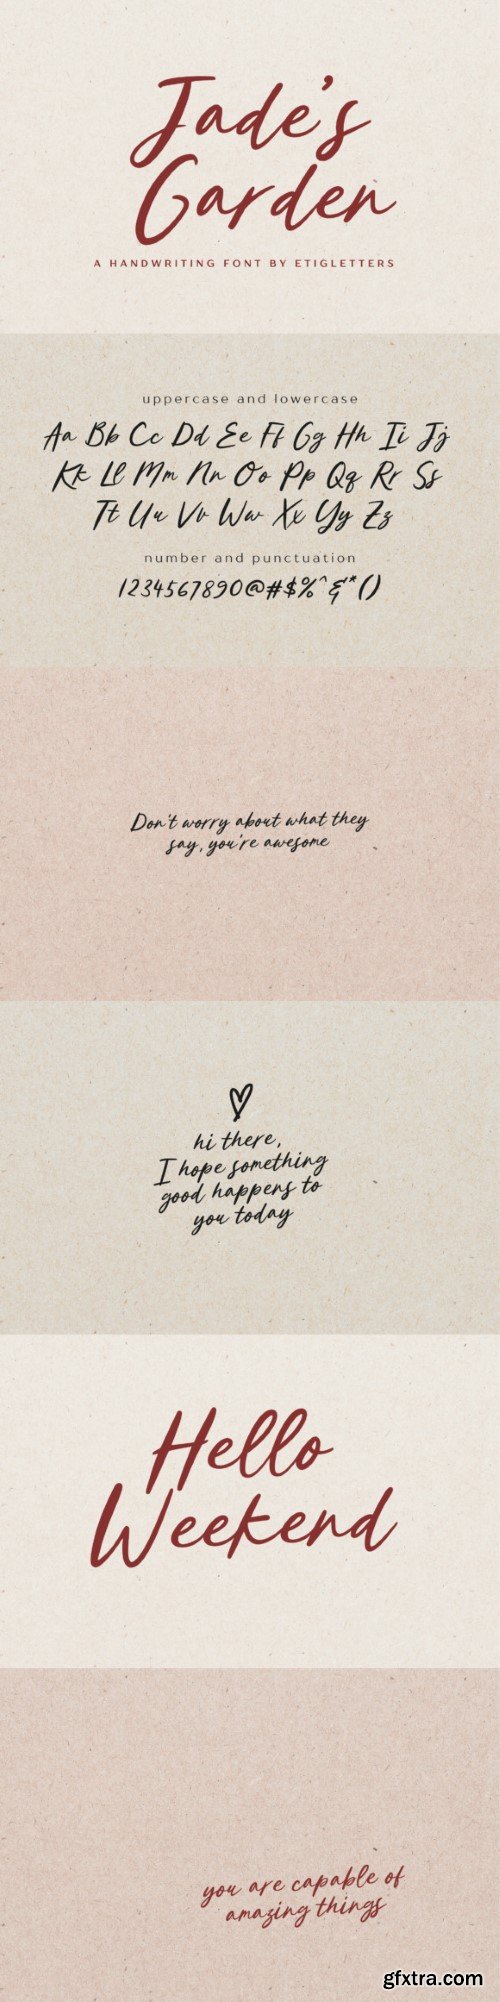 Jade's
Garden
A HANDWRITING FONT BY ETIGLETTERS
uppercase and lowercase
Aa Bb Cc Dd Ee Ff Gg Hh Ii Jj
Kk Ll Mm Nn Oo Pp Qq Rr Ss
Tt Uu Vv Ww Xx Yy Zz
number and punctuation
1234567890@#$%^&*()
Don't worry about what they
say, you're awesome
hi there,
I hope something
good happens to
you today
Hello
Weekend
you are capable of
amazing things
gfxtra.com